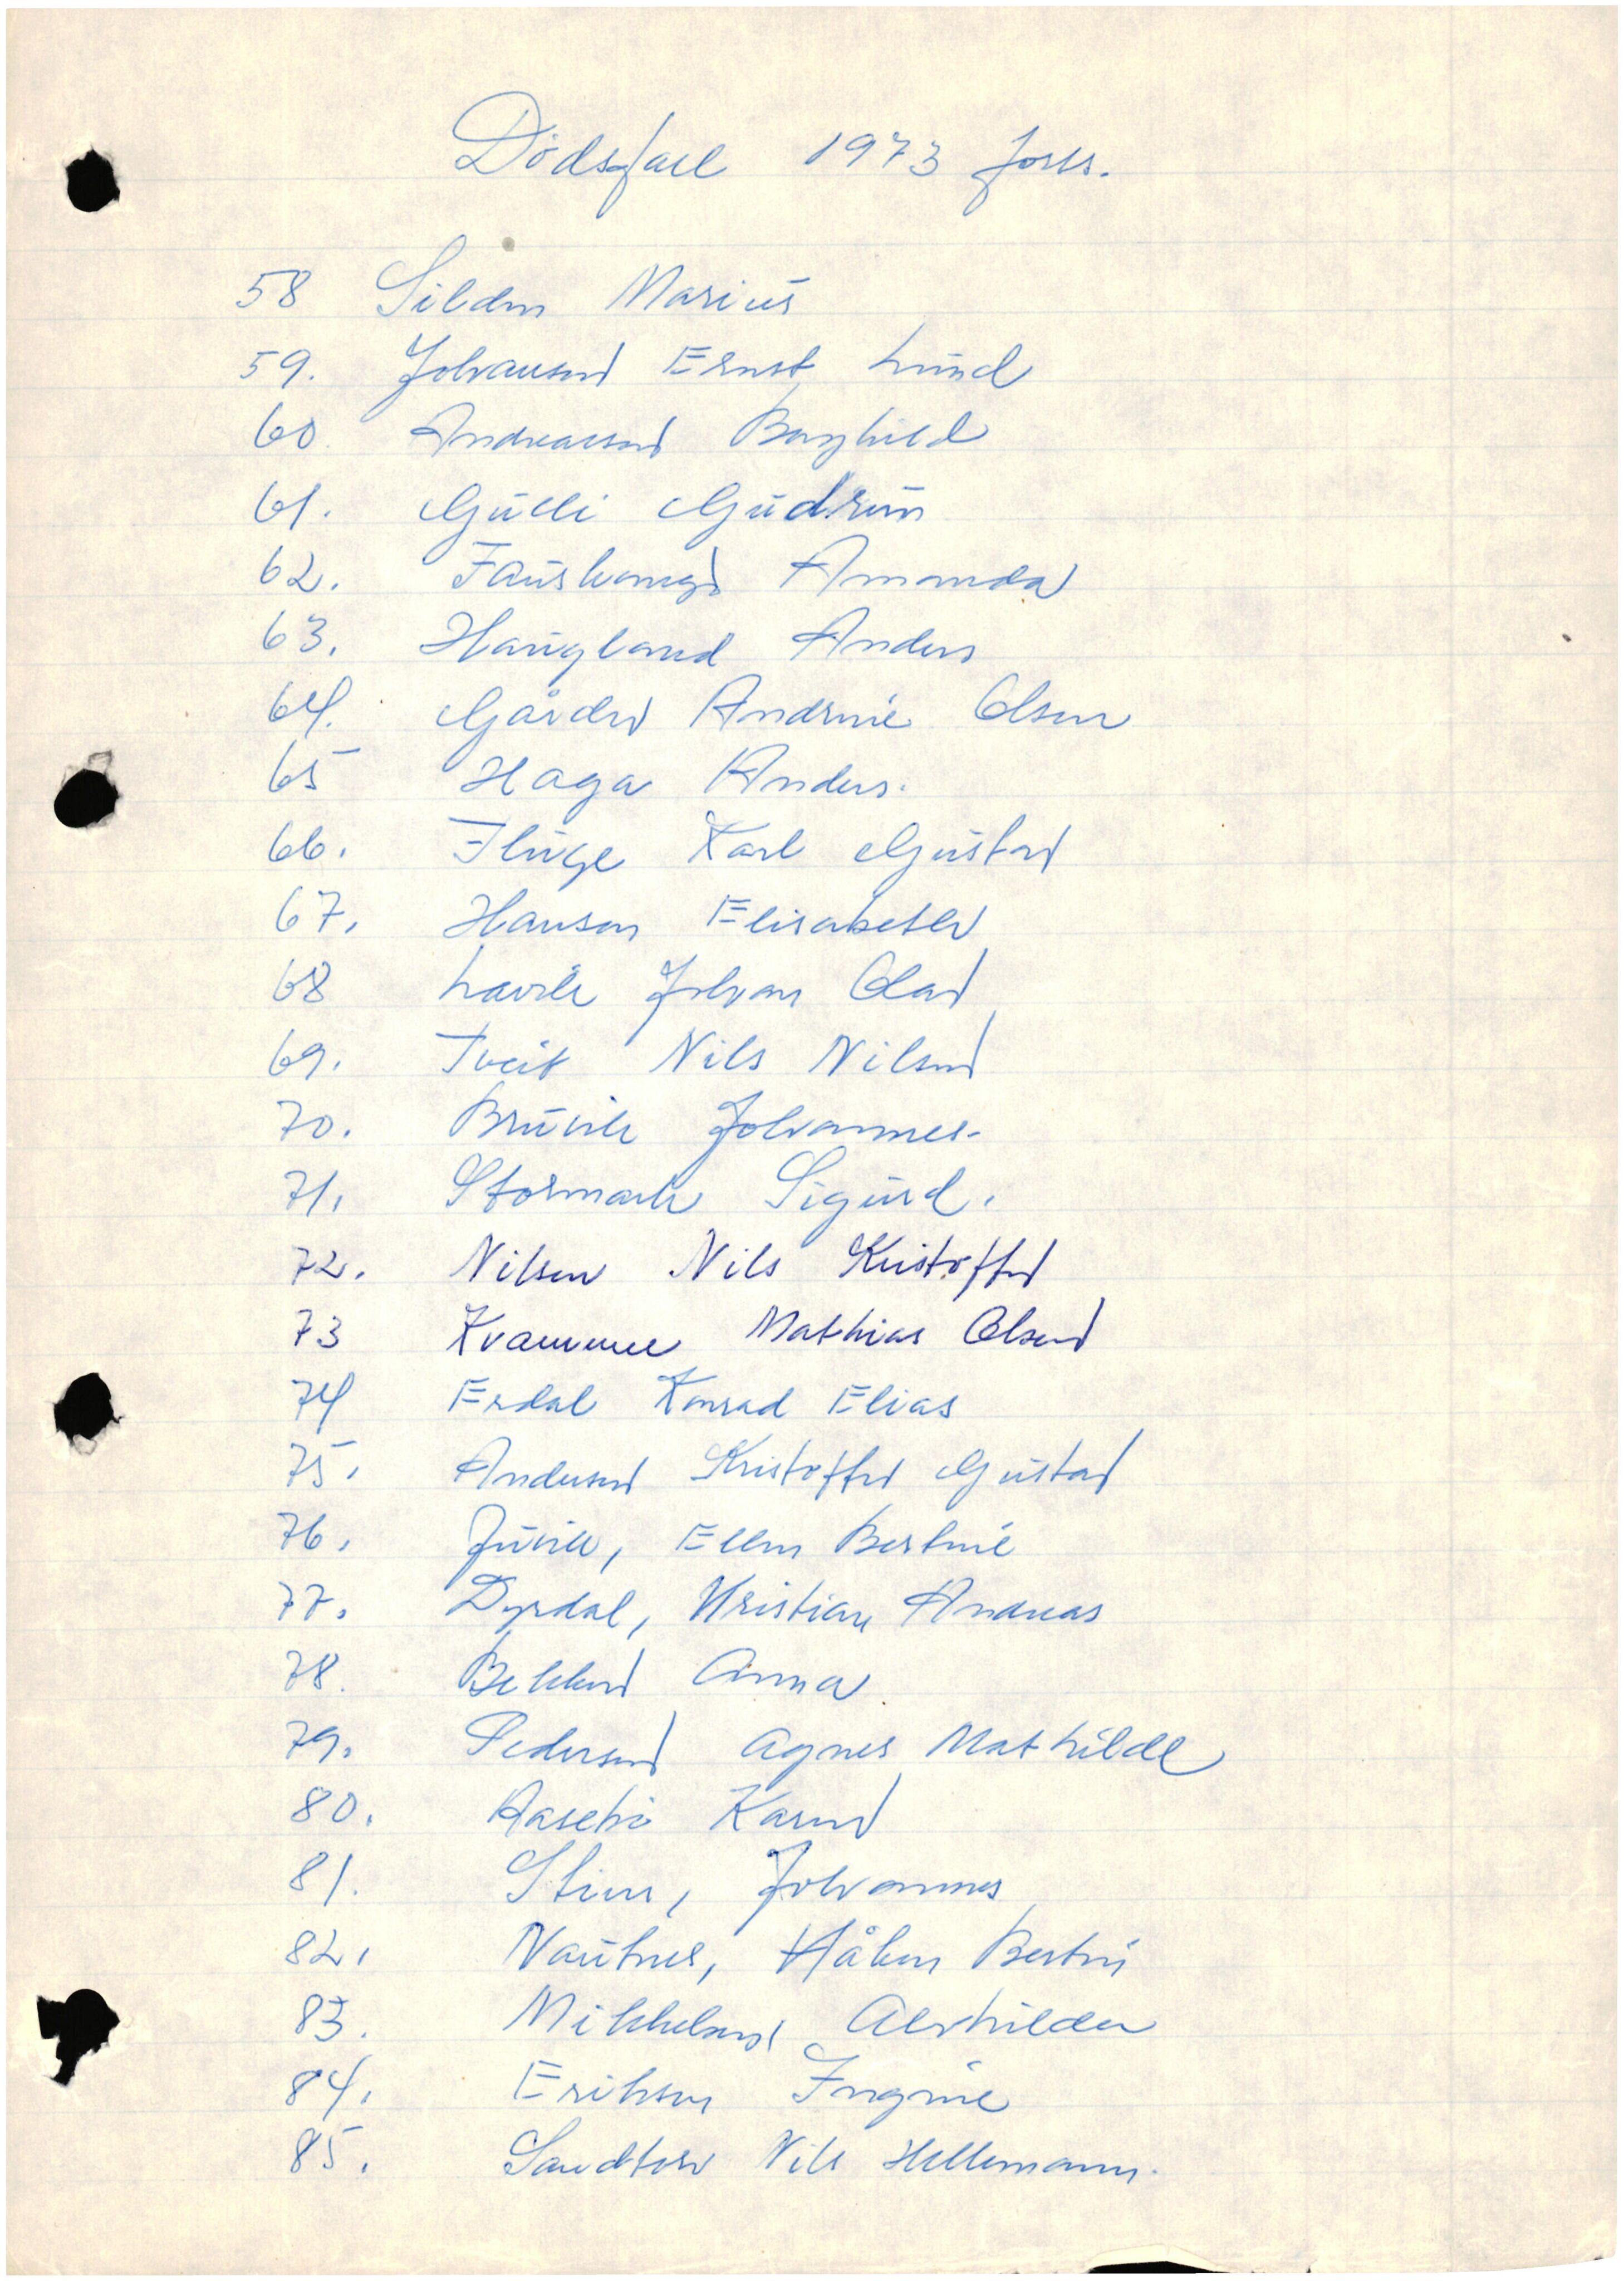 Dödsfall 1973 forts.
58 Silden Marius
59. Johansen Ernst Lund
60. Andreassen Borghild
61. Gulli Gudrun
62. Fauskanger Amanda
63. Haugland Anders
64. Gårder Andrine Olsen
65 Haga Anders.
66. Fluge Karl Gustav
67. Hanson Elisabeth
68 Lavik Johan Olav
69. Tveit Nils Nilsen
70. Bruvik Johannes.
71. Stormark Sigurd.
72. Nilsen Nils Kristoffer
73 Kvamme Mathias Olsen
74 Erdal Konrad Elias
75. Andersen Kristoffer Gustav
76. Juvik, Ellen Bertine
77. Dyrdal, Kristian Andreas
78. Bekken Anna
79. Pedersen Agnes Mathilde
80. Aasebø Karen
81. Johannes
82. Håkon Bertin
83. Mikkelsen Alvhilda
84. Eriksen Ingine
85. Sandtorv Nils Hellemann.